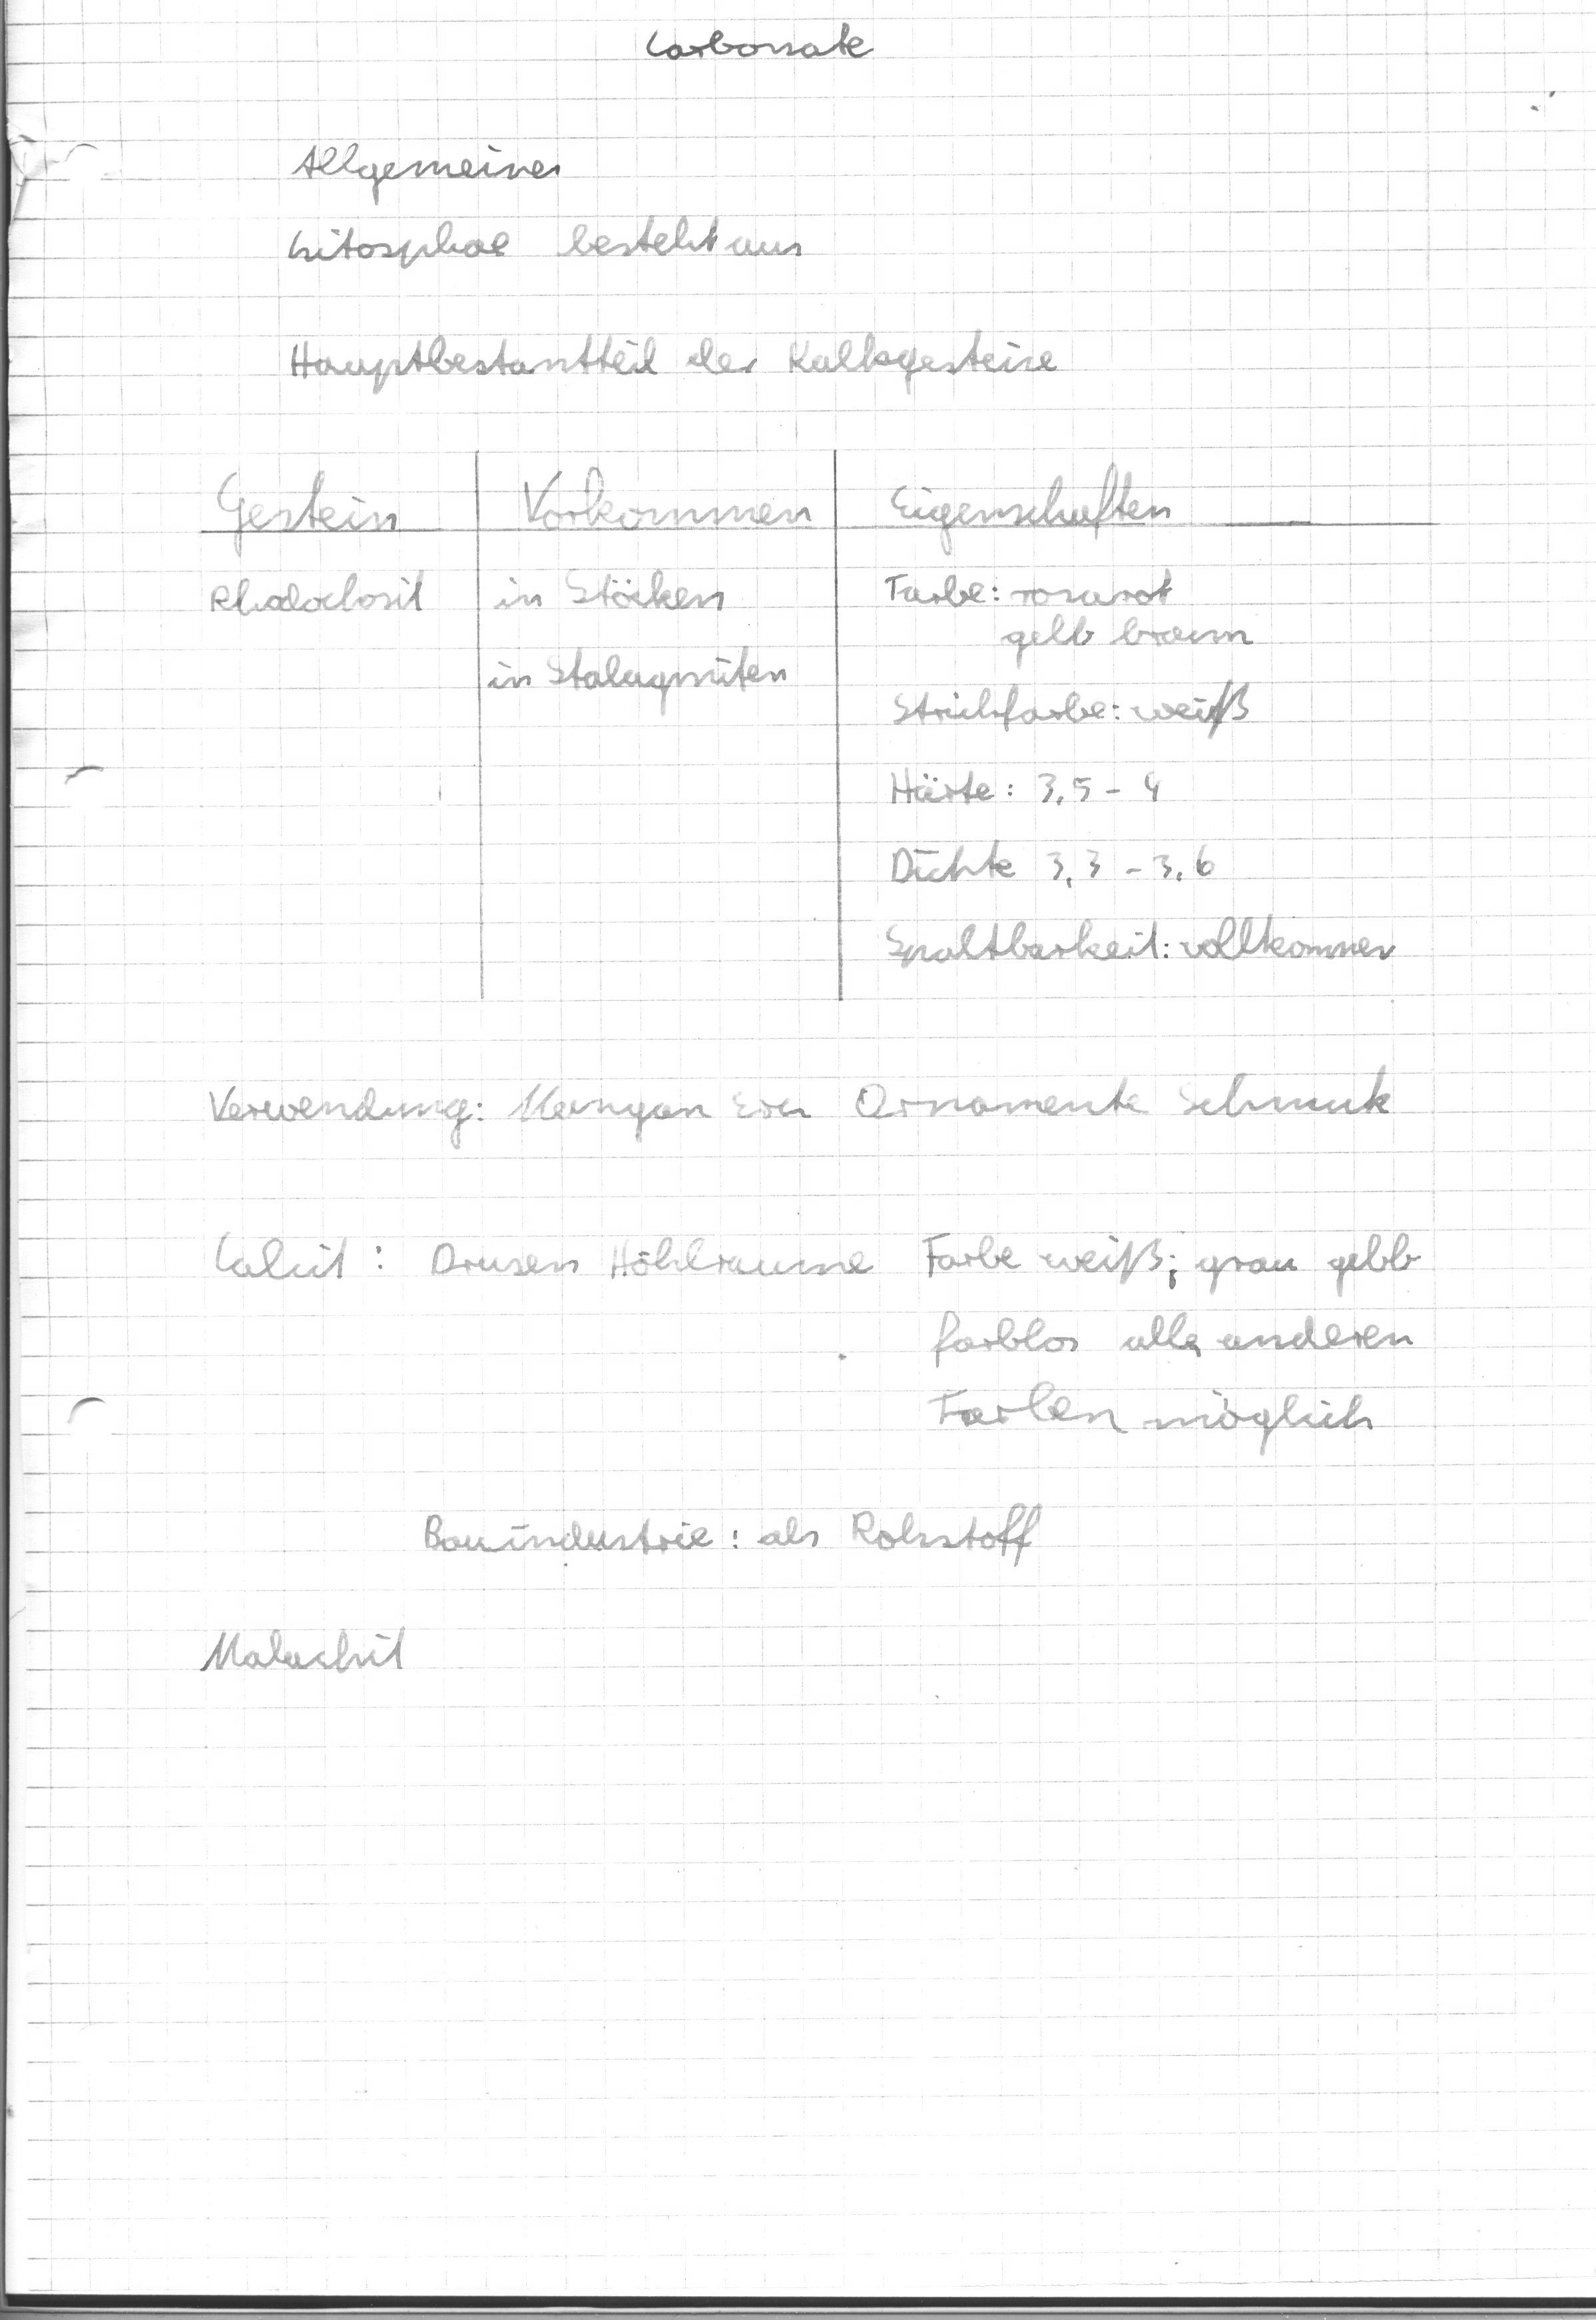 Carbonate
Allgemeines
Litosphäe besteht aus
Hauptbestantteil der Kalkgesteine
Gestein Vorkommen Eigenschaften
Rhodochosit in Stöcken Farbe: rosarot
gelb braun
in Stalagmiten
Strichfarbe: weiß
Härte: 3,5 - 4
Dichte 3,3 - 3,6
Spaltbarkeit: vollkommen
Verwendung: Mangan Erz Ornamente Schmuk
Calcit: Drusen Höhlraume Farbe weiß; grau gelb
farblos alle anderen
Farben möglich
Bauindustrie: als Rohstoff
Malachit